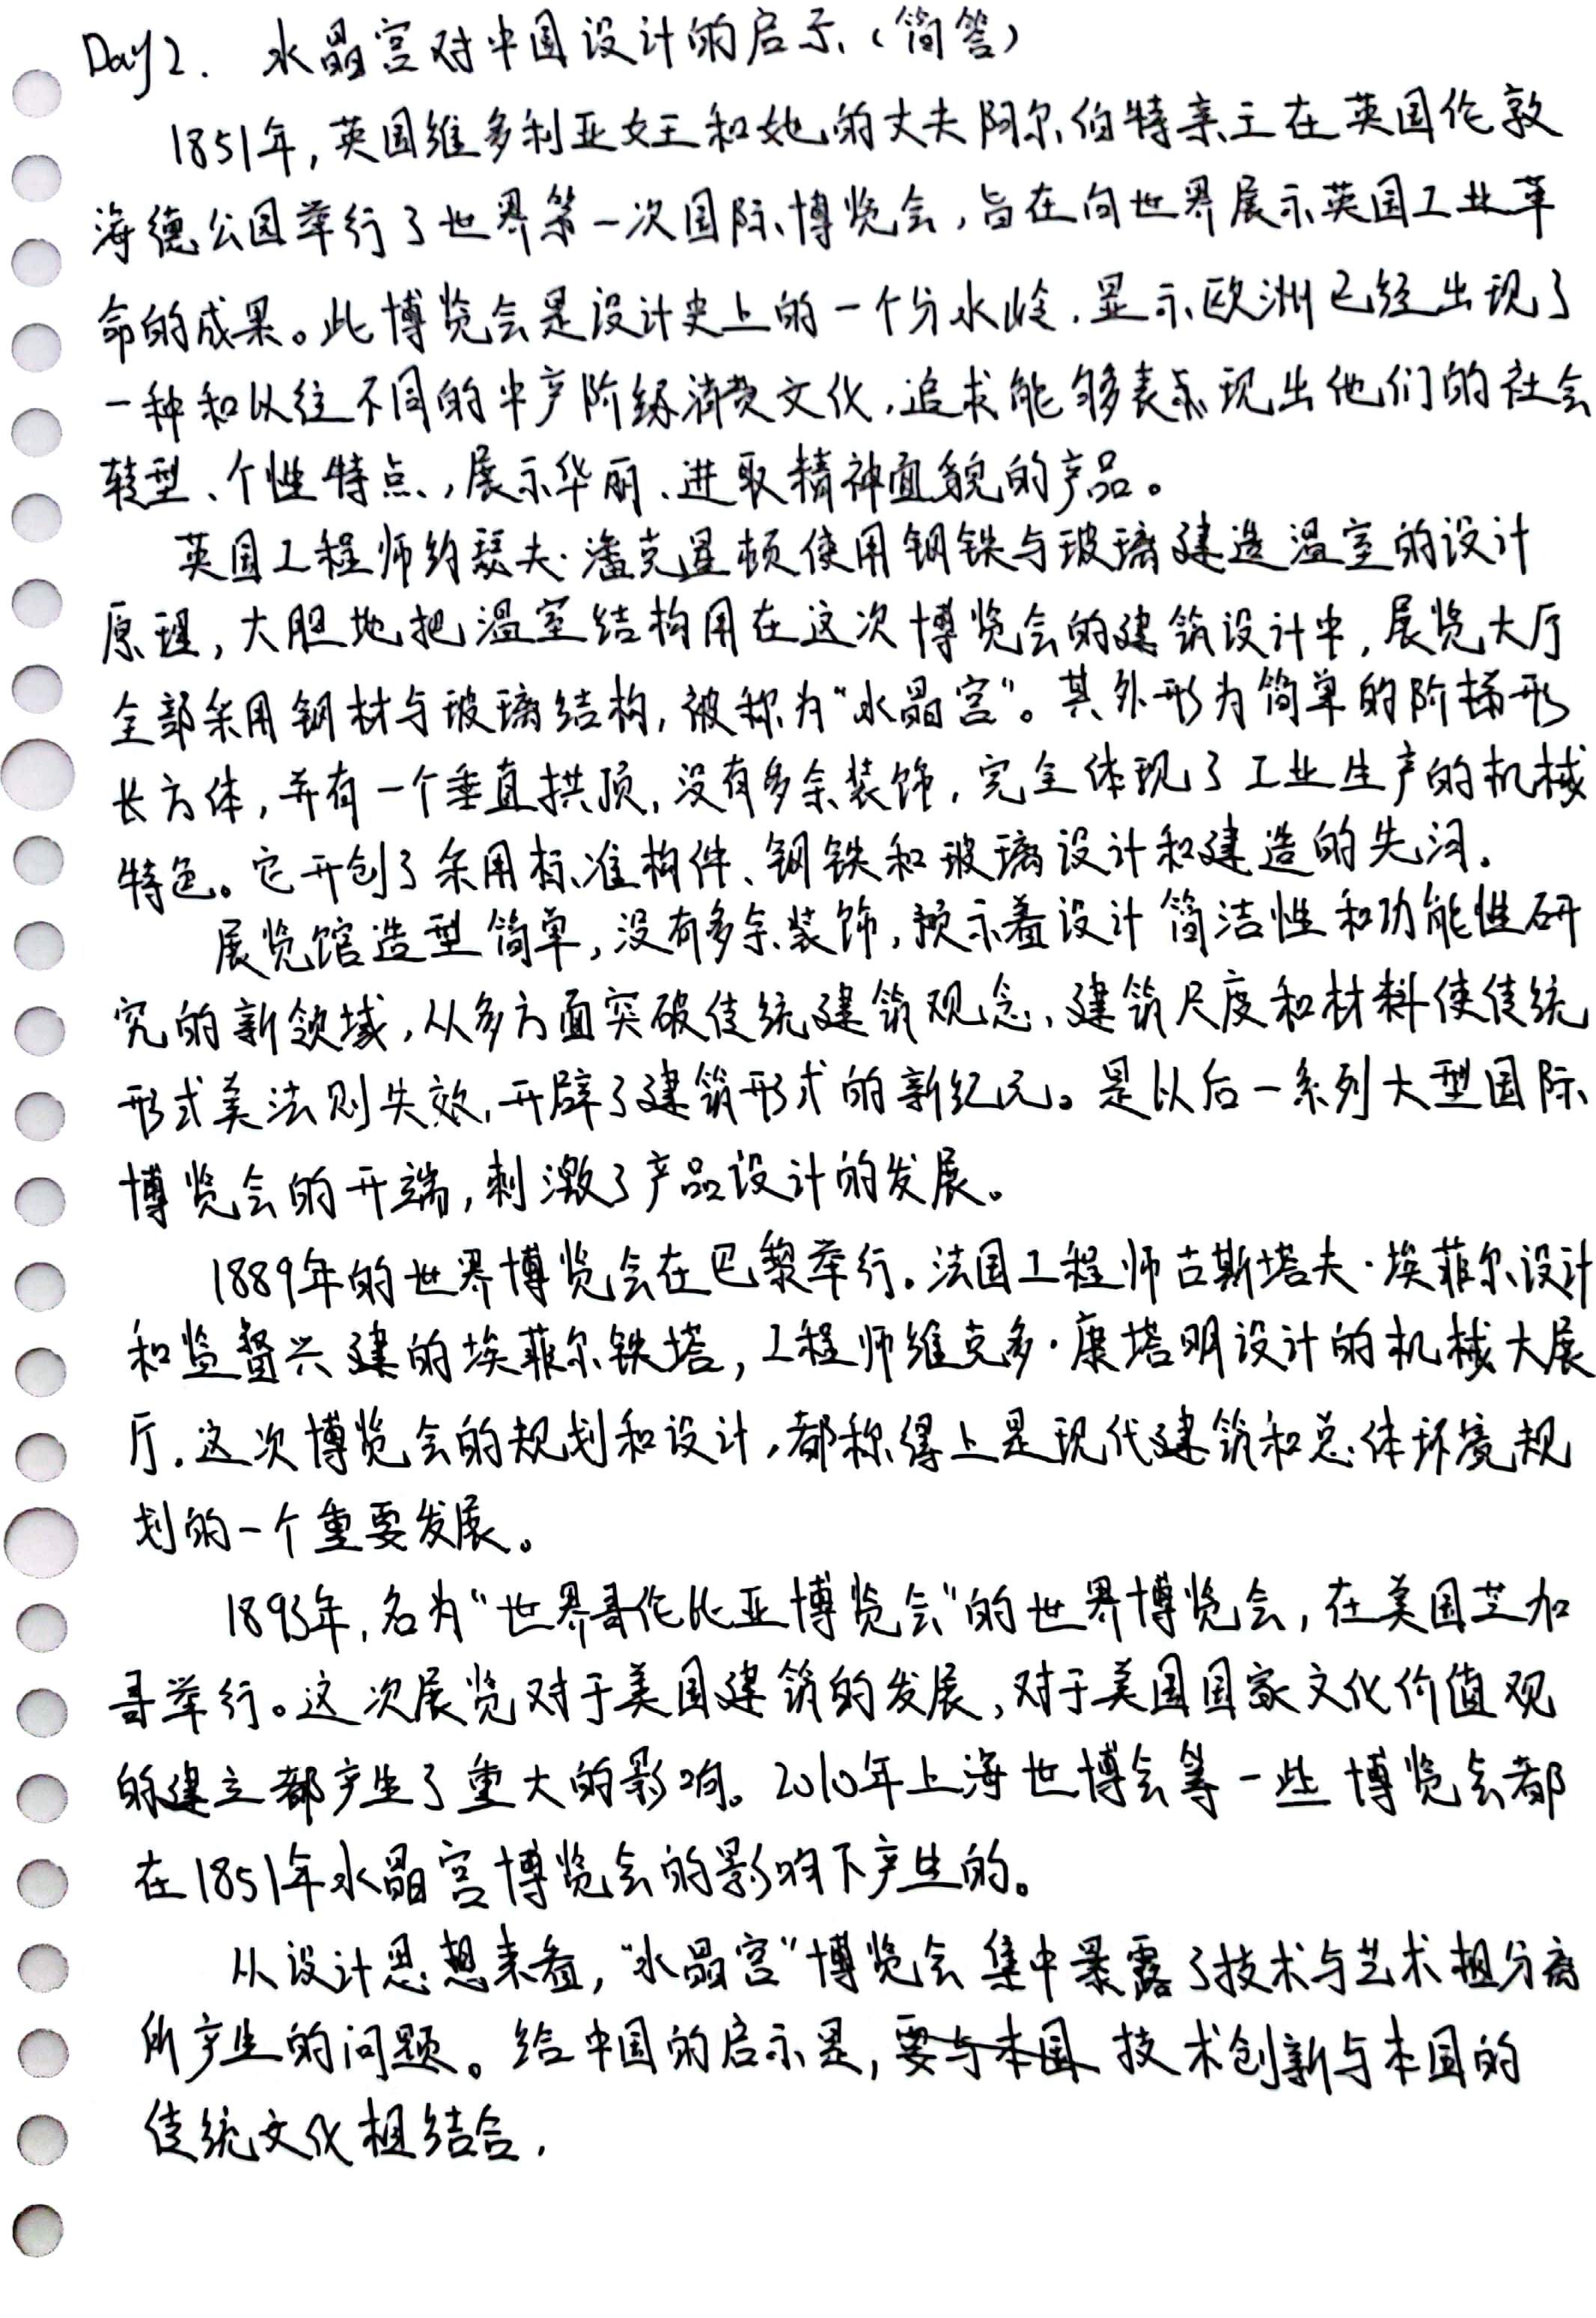 Day2. 水晶宫对中国设计的启示（简答）
1851年，英国维多利亚女王和她的丈夫阿尔伯特亲王在英国伦敦
海德公园举行了世界第一次国际博览会，旨在向世界展示英国工业革
命的成果。此博览会是设计史上的一个分水岭，显示欧洲已经出现了
一种和以往不同的中产阶级消费文化，追求能够表现出他们的社会
转型、个性特点，展示华丽、进取精神面貌的产品。
英国工程师约瑟夫·潘克屋顿使用钢铁与玻璃建造温室的设计
原理，大胆地把温室结构用在这次博览会的建筑设计中，展览大厅
全部采用钢材与玻璃结构，被称为“水晶宫”。其外形为简单的阶梯形
长方体，并有一个垂直拱顶，没有多余装饰，完全体现了工业生产的机械
特色。它开创了采用标准构件、钢铁和玻璃设计和建造的先河。
展览馆造型简单，没有多余装饰，预示着设计简洁性和功能性研
究的新领域，从多方面突破传统建筑观念，建筑尺度和材料使传统
形式美法则失效，开辟了建筑形式的新纪元。是以后一系列大型国际
博览会的开端，刺激了产品设计的发展。
1889年的世界博览会在巴黎举行。法国工程师古斯塔夫·埃菲尔设计
和监督兴建的埃菲尔铁塔，工程师维克多·康塔明设计的机械大展
厅，这次博览会的规划和设计，都称得上是现代建筑和总体环境规
划的一个重要发展。
1893年，名为“世界哥伦比亚博览会”的世界博览会，在美国芝加
哥举行。这次展览对于美国建筑的发展，对于美国国家文化价值观
的建立都产生了重大的影响。2010年上海世博会等一些博览会都
在1851年水晶宫博览会的影响下产生的。
从设计思想来看，“水晶宫”博览会集中暴露了技术与艺术相分离
所产生的问题。给中国的启示是，要与本国 技术创新与本国的
传统文化相结合，